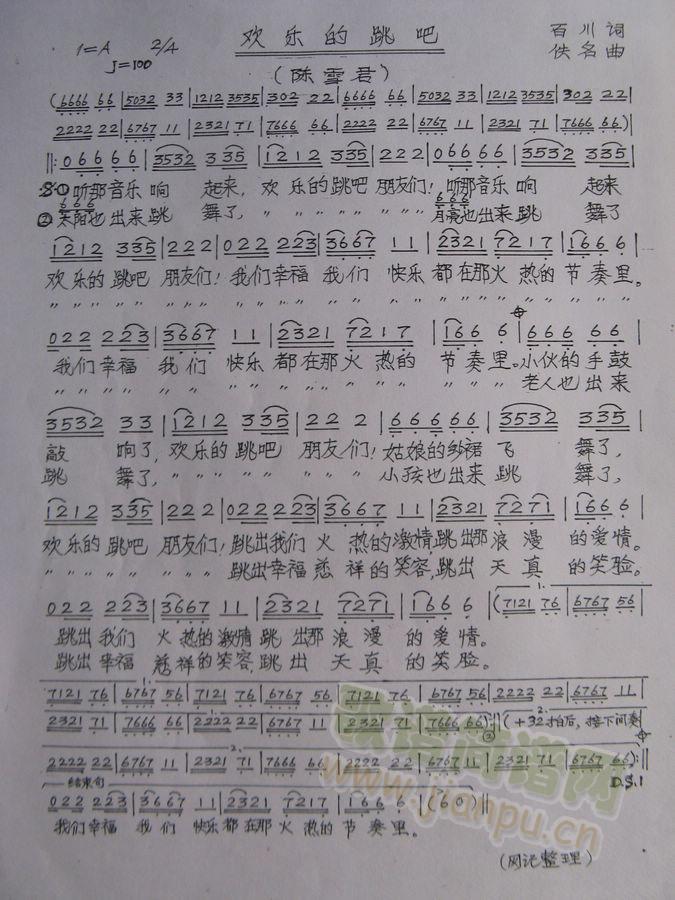 欢乐的跳吧
1=A 2/4
百川词
J=100
佚名曲
(陈雪君)
(6666 66|5032 33|1212 3535|302 22|6666 66|5032 33|1212 3535|302 22|
2222 22|6767 11|2321 71|7666 66|2222 22|6767 11|2321 71|7666 66)|
‖:066 66|3532 335|1212 335|222|066 66|3532 335|
①听那音乐响 起来,欢乐的跳吧朋友们!听那音乐响 起来
666 666
②寒阳也出来跳 舞了,〃〃〃〃〃〃〃月亮也出来跳 舞了
1212 335|222|022 223|3667 11|2321 7217|166 6|
欢乐的跳吧朋友们!我们幸福我们 快乐都在那火热的节奏里。
022 223|3667 11|2321 7217|166 6|666 66|
我们幸福我们 快乐都在那火热的 节奏里。小伙的手鼓
〃〃〃〃〃〃〃〃〃〃〃〃〃〃〃〃〃 老人也出来
3532 33|1212 335|222|66666|3532 335|
敲 响了,欢乐的跳吧 朋友们!姑娘的纱裙飞 舞了,
跳 舞了,〃〃〃〃〃〃〃〃 小孩也出来跳 舞了,
1212 335|222|022 223|3667 11|2321 7271|166 6|
欢乐的跳吧朋友们!跳出我们火热的激情,跳出那浪漫的爱情。
〃〃〃〃〃〃〃〃 跳出幸福慈祥的笑容,跳出天真的笑脸。
022 223|3667 11|2321 7271|166 6|(7121 76|6767 56|
跳出我们火热的激情跳出那浪漫的爱情。
跳出幸福慈祥的笑容,跳出天真的笑脸。
7121 76|6767 56|7121 76|6767 56|7121 76|6767 56|2222 22|6767 11|
2321 71|7666 66|2222 22|6767 11|2321 71|7666 66):‖(+32拍后,接下间奏
2222 22|6767 11|2321 71|7666 66|2222 22|6767 11|2321 71|6767 66):‖
D.S.1
结束句
022 223|3667 11|2321 7217|166 6|(60)‖
我们幸福我们快乐都在那火热的节奏里。
歌谱简谱网
www.jianpu.cn
(网记整理)